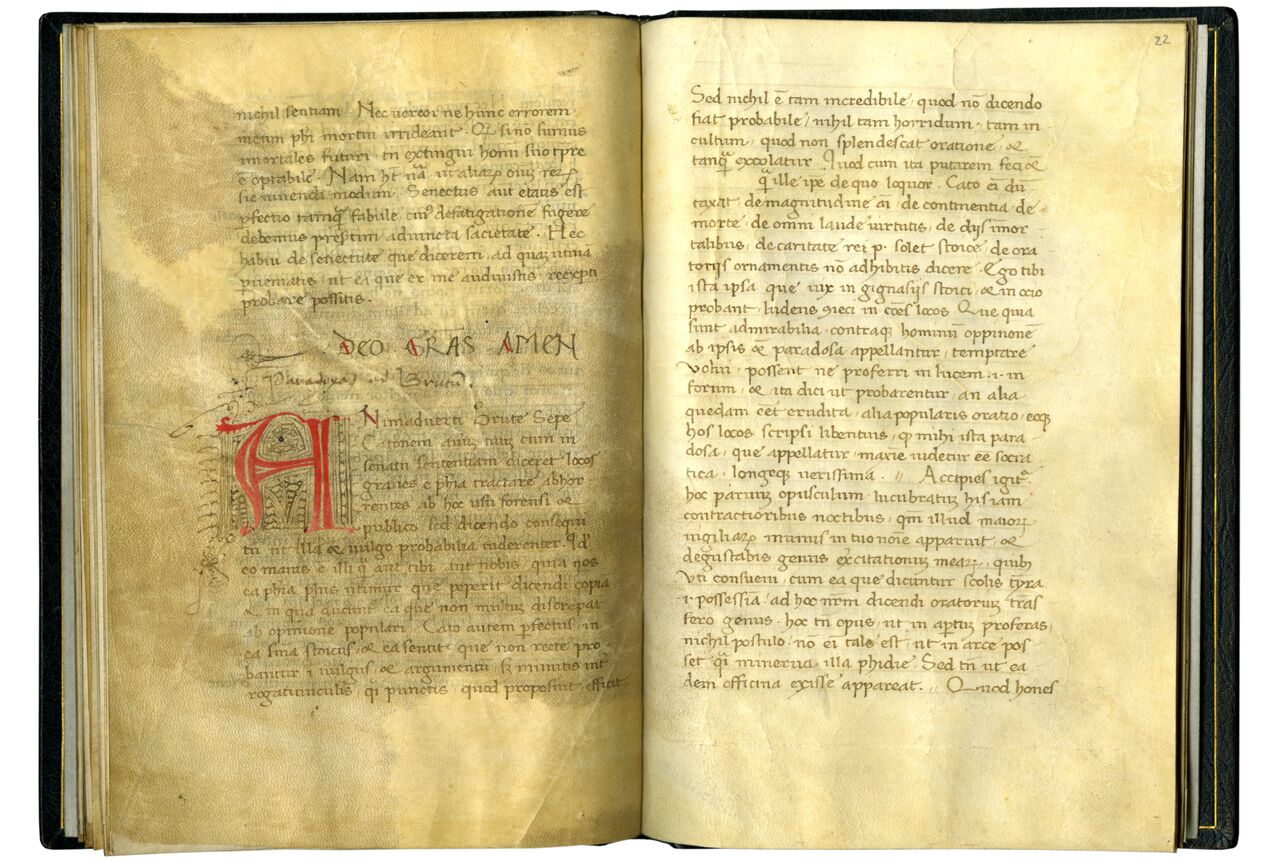 nichil sentiam Nec uereor ne hunc errorem
meum phi mortui irrideant. Qd si nō sumus
imortales futuri tn̄ extingui homī suo tp̄re
ē optabile. Nam ht nā ut aliaꝝ oīuꝫ reꝝ
sic uiuendi modum. Senectus aut etatis est
ꝑfectio tamꝗ̄ fabule cuiꝰ defatigatione fugere
debemus preſtim adiuncta sacietate. Hec
habui de senectute que dicerem, ad quaꝫ utinā
pueniatis, ut ea que ex me audiuistis re exꝑti
probare possitis.
DEO GRAS AMEN
Paradoxa ad Brutū.
ANimaduerti Brute Sepe
Catonem auūꝫ tuuꝫ cum in
senatu sententiam diceret locos
graues e phīa tractare abhor
rentes ab hoc usu forensi &
publico sed dicendo consequi
tn̄ ut illa & uulgo probabilia uiderentur. Qd
eo maius e illi ꝗ̄ aut tibi aut nobis quia nos
ea phia plus utimur que peperit dicendi copiā
& in qua dicunt ea que non multuꝫ discrepāt
ab opinione populari. Cato autem ꝑfectus, in
ea sma stoicus, & ea sentit que non recte pro
bantur ī uulgus, & argumentū, sꝫ minutis int
rogatiunculis qi punctis, quod proposuit efficit
22
Sed nichil ē tam incredibile, quod nō dicendo
fiat probabile, nihil tam horridum, tam in
cultum, quod non splendescat oratione, &
tanꝗ̄ excolatur. Quod cum ita putarem feci &
ꝗ̄ ille ip̄e de quo loquor. Cato eī dū
taxat de magnitudine aī, de continentia, de
morte, de omni laude uirtutis, de dijs imor
talibus, de caritate rei p. solet stoice, de ora
torijs ornamentis nō adhibitis dicere. Ego tibi
ista ipsa que uix in gignasijs stoici, & in ocio
probant, ludens ꝯieci in cōes locos. Que quia
sunt admirabilia, contraqꝫ hominū oppinionē
ab ipsis & paradosa appellantur, temptare
volui, possent ne proferri in lucem .i. in
forum, & ita dici ut probarentur, an alia
quedam eēt erudita, alia popularis oratio, eoqꝫ
hos locos scripsi libentius, ꝙ mihi ista para
dosa, que appellātur, maxīe uidētur eē socra
tica, longeqꝫ uerissima. // Accipies igit᷑
hoc paruuꝫ opusculum lucubratuꝫ his iam
contractioribus noctibus, qm̄ illud maioꝝ
uigiliaꝝ munus in tuo noīe apparuit, &
degustabis genus excitationuꝫ meaꝝ, quibꝫ
Vti consueui, cum ea que dicuntur scolis tyra
.i. possessia, ad hoc nr̄m dicendi oratoriuꝫ trās
fero genus. hoc tn̄ opus, ut in aꝑtuꝫ proferas,
nichil postulo, nō eī tale est, ut in arce pos
set qi minerua illa phidie Sed tn̄ ut ea
dem officina exisse appareat. // Quod hones